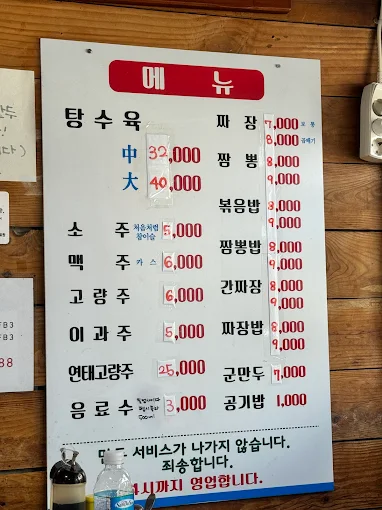 메뉴
탕수육
中 32,000
大 40,000
소주 처음처럼 참이슬 5,000
맥주 카스 6,000
고량주 6,000
이과주 5,000
연태고량주 25,000
음료수 500ml 3,000
짜장 7,000 보통
8,000 곱배기
짬뽕 8,000
9,000
볶음밥 8,000
9,000
짬뽕밥 8,000
9,000
간짜장 8,000
9,000
짜장밥 8,000
9,000
군만두 7,000
공기밥 1,000
서비스가 나가지 않습니다.
죄송합니다.
4시까지 영업합니다.